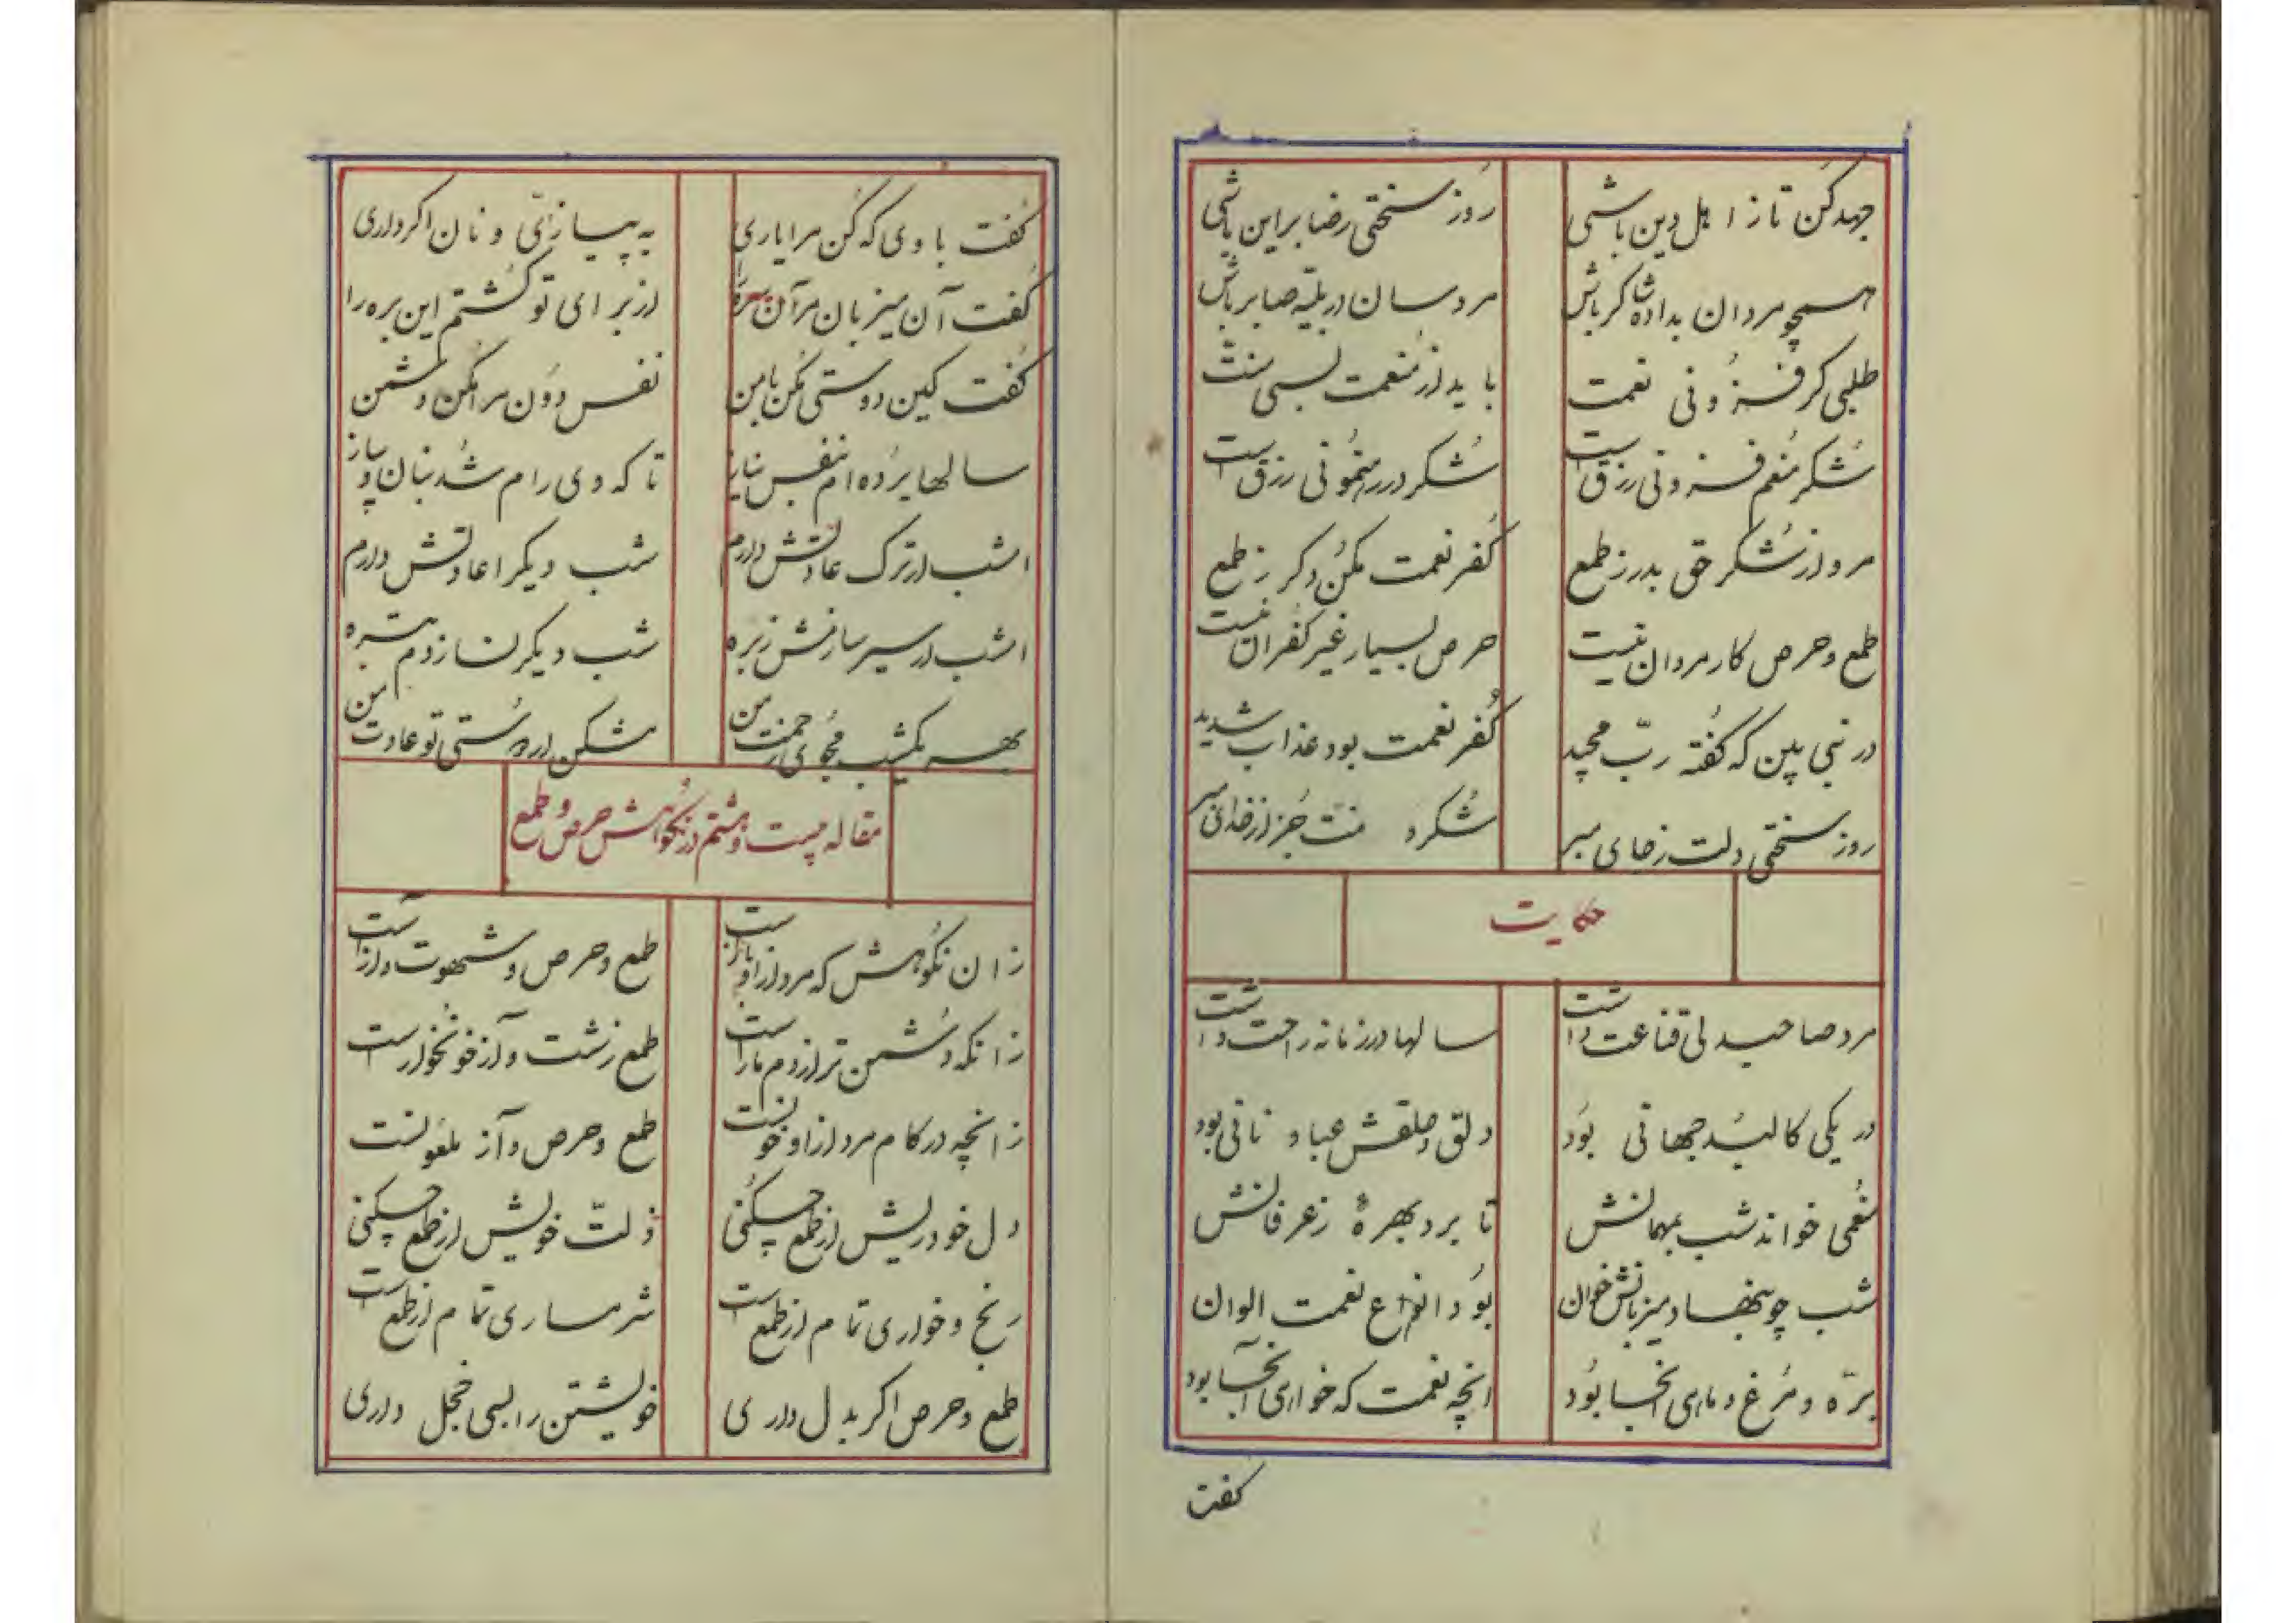 جهد کن تا ز اهل دین باشی روز سختی رضا بر این باشی
همچو مردان بداده شاکر باش مردسان در بلیه صابر باش
طلبی گر فزونی نعمت باید از منعمت بسی منت
شکر منعم فزونی رزق است شکر در رهنمونی رزق است
مرو از شکر حق بدر ز طمع کفر نعمت مکن دگر ز طمع
طمع و حرص کار مردان نیست حرص بسیار غیر کفران نیست
در نبی بین که گفته رب مجید کفر نعمت بود عذاب شدید
روز سختی دلت ز جای مبر شکر و منت جز از خدای مبر
حکایت
مرد صاحبدلی قناعت داشت سالها در زمانه راحت داشت
در یکی کالبد جهانی بود دلق و حلقش عبا و نانی بود
منعمی خواند شب بمهمانش تا برد بهرهٔ ز عرفانش
شب چو بنهاد میزبانش خوان بود انواع نعمت الوان
بره و مرغ و ماهی آنجا بود آنچه نعمت که خواهی آنجا بود
گفت
گفت با وی که کن مرا یاری به پیازی و نان اگر داری
گفت آن میزبان مر آن سره را از برای تو کشتم این بره را
گفت کین دوستی مکن با من نفس دون مرا مکن دشمن
سالها برده‌ام بنفس نیاز تا که وی رام شد بنان و پیاز
امشب ار ترک عادتش دارم شب دیگر اعادتش دارم
امشب ار سیر سازمش ز بره شب دیگر نسازدم بتره
بهر یکشب مجوی زحمت من مشکن ار دوستی تو عادت من
مقاله بیست و هشتم در نکوهش حرص و طمع
زان نکوهش که مرد از او باز است طمع و حرص و شهوت و آز است
زانکه دشمن‌تر از دم مار است طمع زشت و آز خونخوار است
زانچه در کام مرد از او خونست طمع و حرص و آز ملعونست
دل خود ریش از طمع چکنی ذلت خویش از طمع چکنی
رنج و خواری تمام از طمع است شرمساری تمام از طمع است
طمع و حرص اگر بدل داری خویشتن را بسی خجل داری